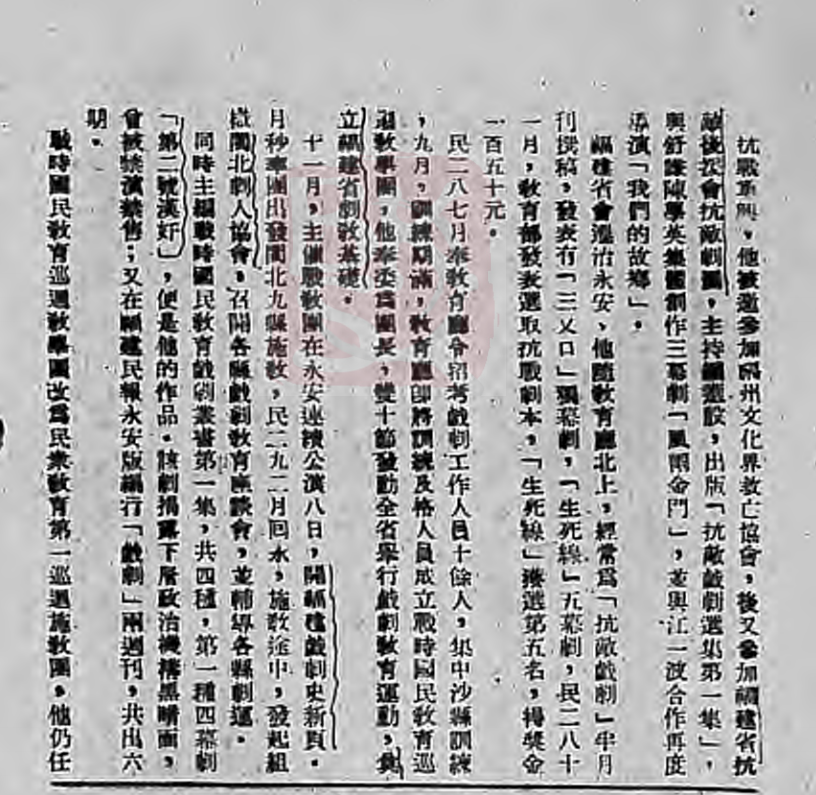 抗戰軍興，他被邀參加福州文化界救亡協會，後又參加福建省抗
敵後援會抗敵劇團，主持編選股，出版「抗敵戲劇選集第一集」，
與舒 陳學英集體創作三幕劇「風雨金門」，並與江一波合作再度
演「我們的故鄉」。
福建省會遷治永安、他隨教育廳北上，經常爲「抗敵戲劇」半月
刊撰稿，發表有「三乂口」獨幕劇，「生死線」五幕劇，民二八十
一月，教育部發表選取抗戰劇本，「生死線」獲選第五名，得獎金
一百五十元。
民二八七月奉教育廳令招考戲劇工作人員十餘人，集中沙縣訓練
，九月，訓練期滿，教育廳卽將訓練及格人員成立戰時國民教育巡
迴教學團，他奉委爲團長，雙十節發動全省舉行戲劇教育運動，奠
立福建省劇教基礎。
十一月，主催戰教團在永安連續公演八日，開福建戲劇史新頁。
月秒率團出發閩北九縣施教，民二九二月回永，施教途中，發起組
織閩北劇人協會，召開各縣戲劇教育座談會，並輔導各縣劇運。
同時主編戰時國民教育戲劇叢書第一集，共四種，第一種四幕劇
「第二號漢奸」，便是他的作品。該劇揭露下層政治機構黑暗面，
會被禁演禁售；又在福建民報永安版編行「戲劇」兩週刊，共出六
期。
戰時國民教育巡迴教學團改爲民衆教育第一巡迴施教團，他仍任